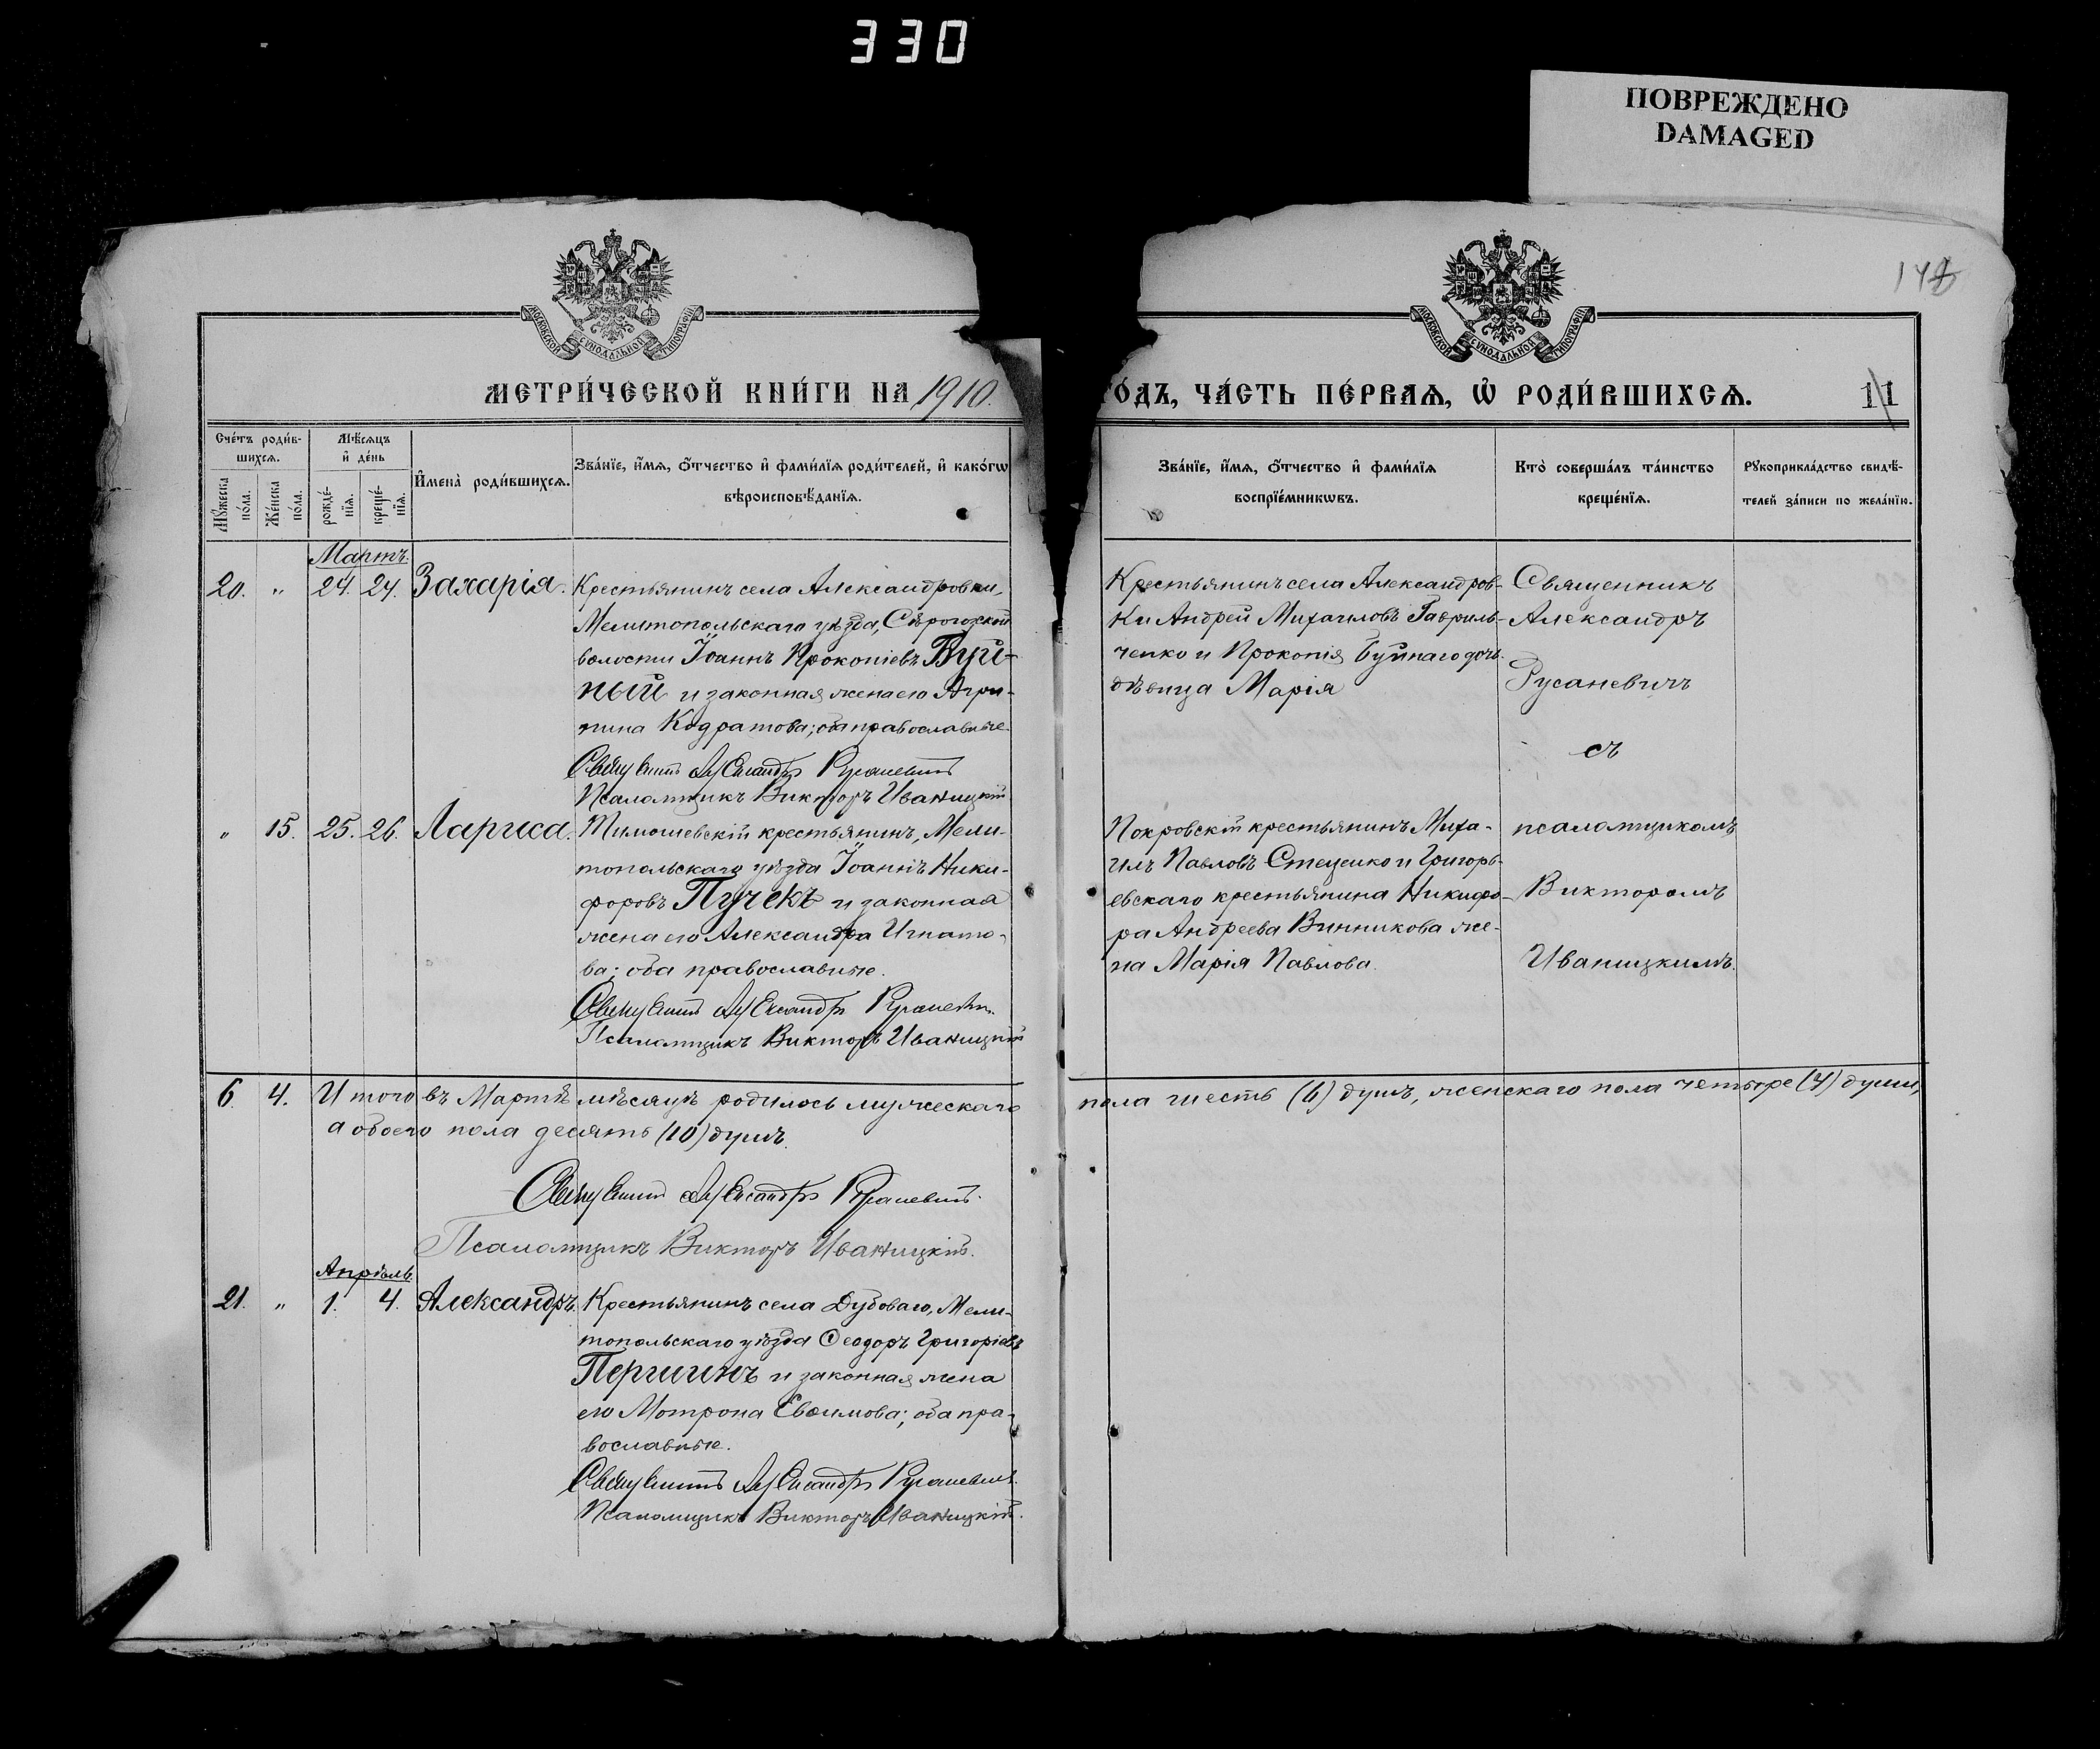 330
ПОВРЕЖДЕНО
DAMAGED
МОСКОВСКОЙ СѴНОДАЛЬНОЙ ТИПОГРАФІИ
МОСКОВСКОЙ СѴНОДАЛЬНОЙ ТИПОГРАФІИ
МЕТРИ́ЧЕСКОЙ КНИ́ГИ НА 1910.
ГО́ДЪ, ЧА́СТЬ ПЕ́РВАѦ, Ѡ҆ РОДИ́ВШИХСѦ.
11
Сче́тъ роди́в-
шихсѧ.
Мꙋ́жеска
по́ла.
Же́нска
по́ла.
Мѣ́сѧцъ
и҆ де́нь
рожде́-
нїѧ.
креще́-
нїѧ.
И҆мена̀ роди́вшихсѧ.
Зва́нїе, и҆́мѧ, ѻ҆́тчество и҆ фами́лїѧ роди́телей, и҆ како́гѡ
вѣроисповѣ́данїѧ.
Зва́нїе, и҆́мѧ, ѻ҆́тчество и҆ фами́лїѧ
воспрїе́мникѡвъ.
Кто̀ соверша́лъ та́инство
креще́нїѧ.
Рꙋкоприкла́дство свидѣ́-
телей за́писи по жела́нїю.
Мартъ.
20. „ 24. 24. Захарія.
Крестьянинъ села Александровки,
Мелитопольскаго уѣзда, Сѣрогозской
волости Іоаннъ Прокопіевъ Буй-
ный и законная жена его Агри-
пина Кодратова; оба православные
Священникъ Александръ Русаневичъ
Псаломщикъ Викторъ Иваницкій
Крестьянинъ села Александров-
ки Андрей Михаиловъ Гавриль-
ченко и Прокопія Буйнаго дочь
дѣвица Марія
Священникъ
Александръ
Русаневичъ
съ
„ 15. 25. 26. Лариса.
Тимошевскій крестьянинъ, Мели-
топольскаго уѣзда Іоаннъ Ники-
форовъ Пучекъ и законная
жена его Александра Игнато-
ва; оба православные.
Священникъ Александръ Русаневичъ
Псаломщикъ Викторъ Иваницкій
Покровскій крестьянинъ Миха-
илъ Павловъ Стеценко и Григорь-
евскаго крестьянина Никифо-
ра Андреева Винникова же-
на Марія Павлова.
псаломщикомъ
Викторомъ
Иваницкимъ.
6. 4. Итого въ Мартѣ мѣсяцѣ родилось мужескаго
пола шесть (6) душъ, женскаго пола четыре (4) души,
а обоего пола десять (10) душъ.
Священникъ Александръ Русаневичъ.
Псаломщикъ Викторъ Иваницкій.
Апрѣль
21. „ 1. 4. Александръ.
Крестьянинъ села Дубоваго, Мели-
топольскаго уѣзда Ѳеодоръ Григоріевъ
Першинъ и законная жена
его Мотрона Евѳимова; оба пра-
вославные.
Священникъ Александръ Русаневичъ.
Псаломщикъ Викторъ Иваницкій.